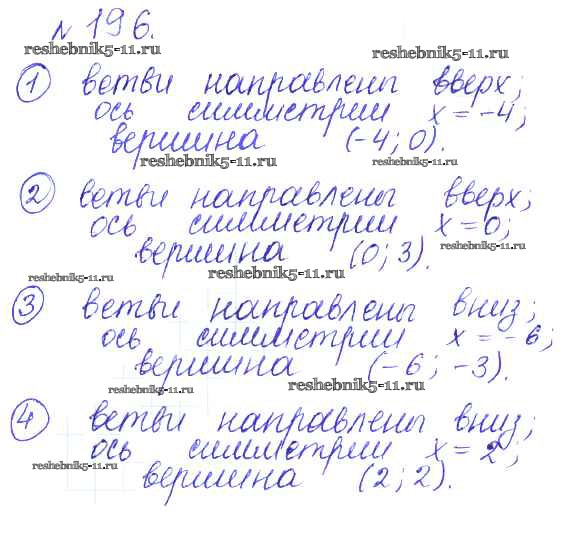 № 196.
reshebnik5-11.ru reshebnik5-11.ru
1 ветви направлены вверх;
ось симметрии x = -4;
вершина (-4; 0).
reshebnik5-11.ru reshebnik5-11.ru
2 ветви направлены вверх;
ось симметрии x = 0;
вершина (0; 3).
reshebnik5-11.ru
reshebnik5-11.ru reshebnik5-11.ru
3 ветви направлены вниз;
ось симметрии x = -6;
вершина (-6; -3).
reshebnik5-11.ru reshebnik5-11.ru
4 ветви направлены вниз;
ось симметрии x = 2;
вершина (2; 2).
reshebnik5-11.ru reshebnik5-11.ru